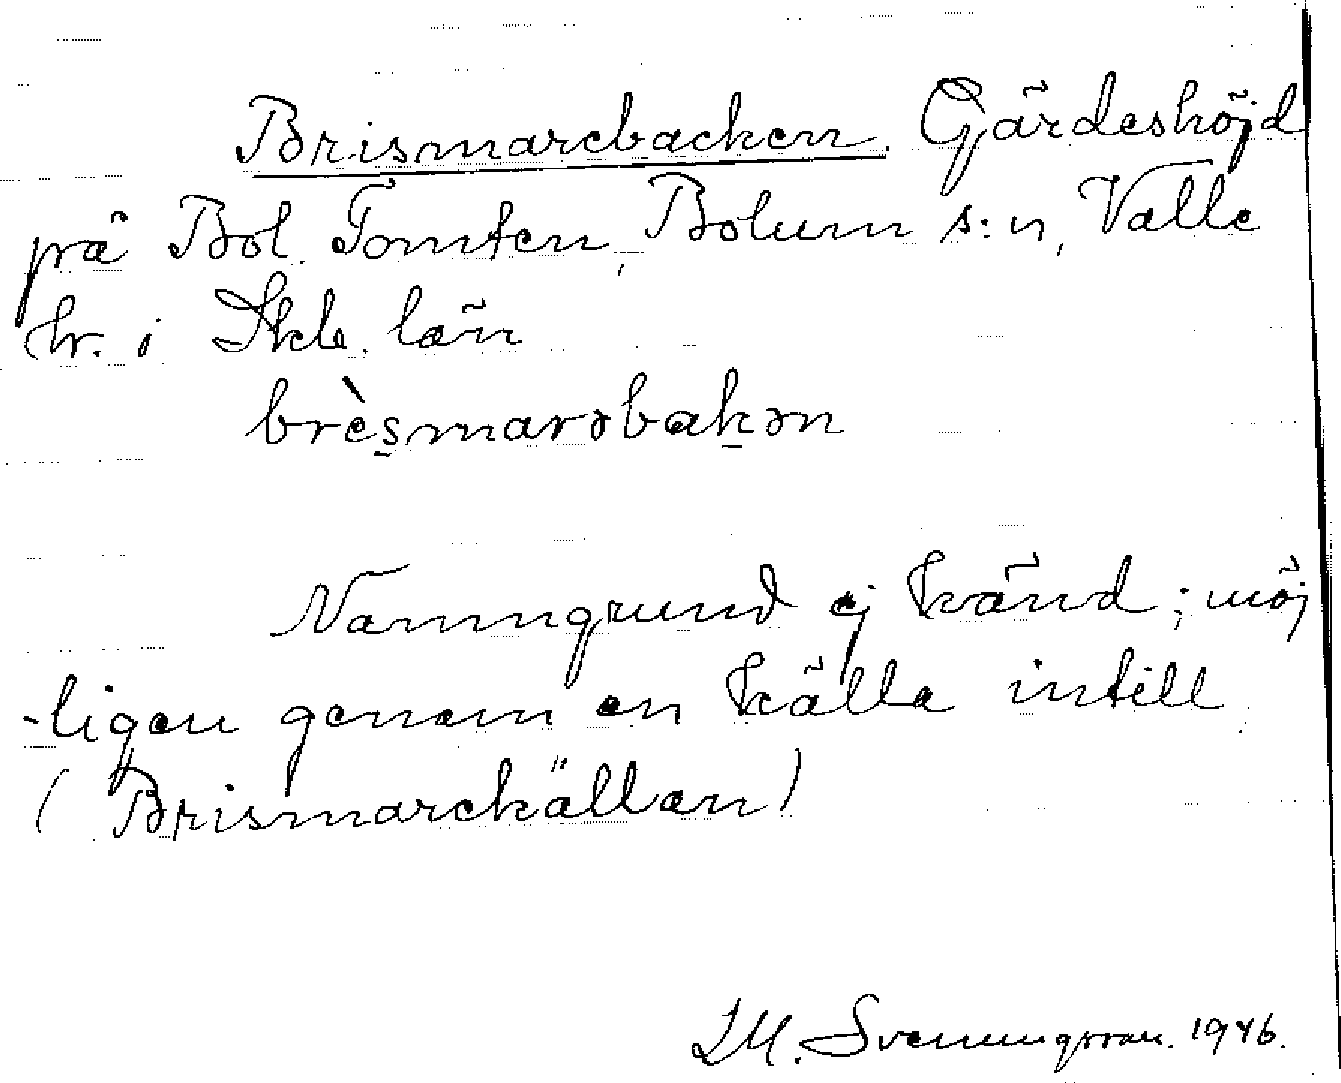 Brismarebacken. Gärdeshöjd
på Bol. Tomten, Bolum s:n, Valle
hr. i Skb. län
brèsmarəbakən
Namngrund ej känd; möj
-ligen genom en källa intill
(Brismarekällan)
M. Svenungsson. 1946.